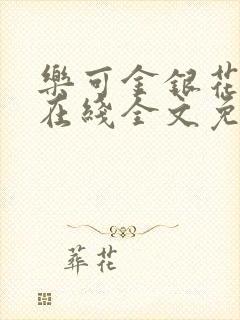 樂可金銀花
在綫全文免
葬花